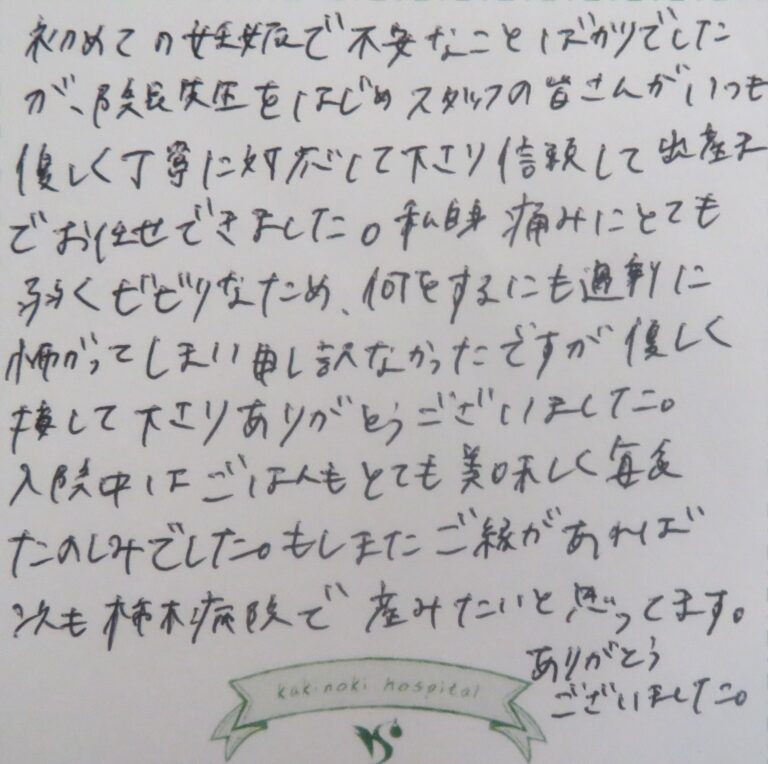 初めての妊娠で不安なことばかりでした
が、院長先生をはじめスタッフの皆さんがいつも
優しく丁寧に対応して下さり信頼して出産ま
でお任せできました。私自身痛みにとても
弱くビビりなため、何をするにも過剰に
怖がってしまい申し訳なかったですが優しく
接して下さりありがとうございました。
入院中はごはんもとても美味しく毎食
たのしみでした。もしまたご縁があれば
次も柿木病院で産みたいと思ってます。
ありがとう
ございました。
kakinoki hospital